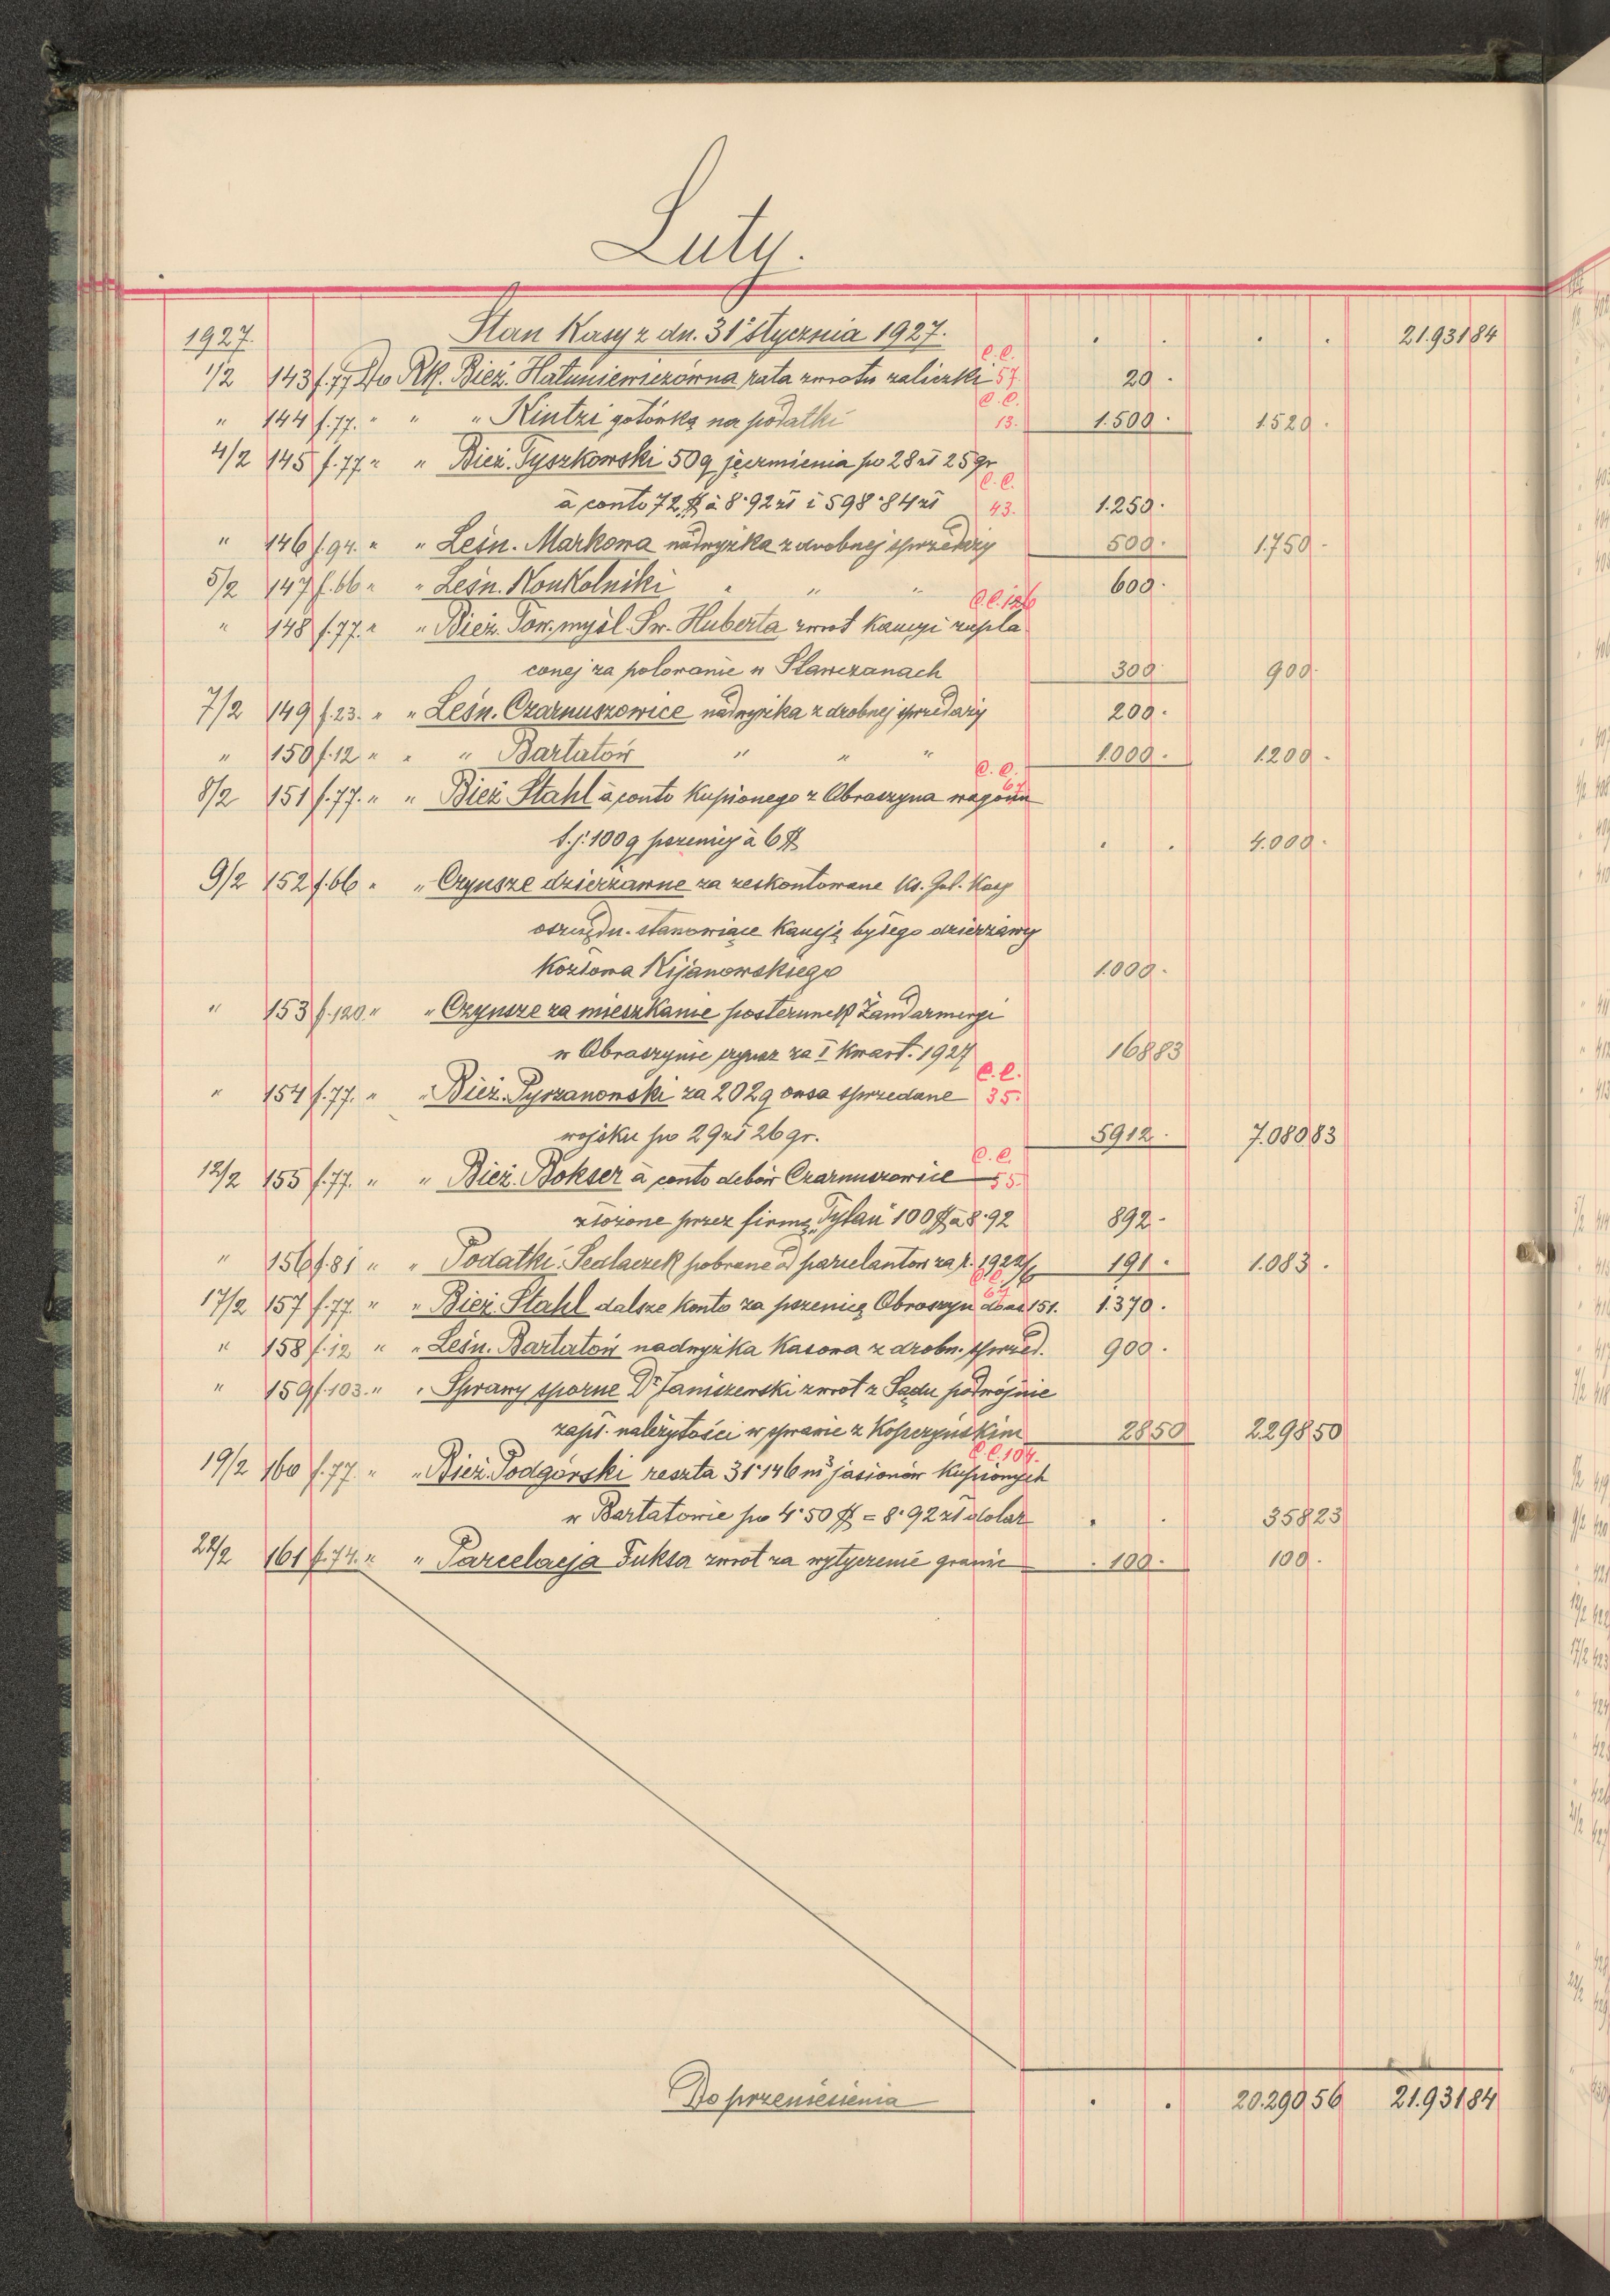 Luty.
1927. Stan Kasy z dn. 31 stycznia 1927. . . . . 21.931 84
1/2 143 f.77 Do Rk. Bież. Hatuniewiczówna rata zwrotu zaliczki C.C. 57. 20 .
" 144 f.77. " " " Kintzi gotówką na podatki C.C. 13. 1.500 . 1.520 .
4/2 145 f.77 " " Bież. Tyszkowski 50 q jęczmienia po 28 zł 25 gr
à conto 72 $ à 8·92 zł i 598·84 zł C.C. 43. 1.250 .
" 146 f.94. " " Leśn. Markowa nadwyżka z drobnej sprzedaży 500 . 1.750 .
5/2 147 f.66 " " Leśn. Konkolniki " " " 600 .
" 148 f.77. " " Bież. Tow. myśl. Św. Huberta zwrot kaucyi zapła C.C. 126
conej za polowanie w Stawczanach 300 900 .
7/2 149 f.23. " " Leśn. Czarnuszowice nadwyżka z drobnej sprzedaży 200 .
" 150 f.12 " " " Bartatów " " " 1.000 . 1.200 .
8/2 151 f.77. " " Bież. Stahl à conto kupionego z Obroszyna wagonu C.C. 67
t.j. 100 q pszenicy à 6 $ . . 4.000 .
9/2 152 f.66 " " Czynsze dzierżawne za zeskontowane Ks. Gal. Kasy
oszczędn. stanowiące kaucję byłego dzierżawy
Kozłowa Kijanowskiego 1.000 .
" 153 f.120. " " Czynsze za mieszkanie posterunek Żandarmeryi
w Obroszynie czynsz za I kwart. 1927 168 83
" 154 f.77. " " Bież. Pyszanowski za 202 q owsa sprzedane C.C. 35.
wojsku po 29 zł 26 gr. 5912 . 7.080 83
12/2 155 f.77. " " Bież. Bokser à conto debów Czarnuszowice C.C. 55.
złożone przez firmę "Tytan" 100 $ à 8·92 892 .
" 156 f.81 " " Podatki. Sedlaczek pobrane od parcelantów za r. 1922/6 191 . 1.083 .
17/2 157 f.77. " " Bież. Stahl dalsze konto za pszenicę Obroszyn 151. C.C. 67 1.370 .
" 158 f.12 " " Leśn. Bartatów nadwyżka kasowa z drobn. sprzed. 900 .
" 159 f.103. " " Sprawy sporne Dr Janiszewski zwrot z Sądu podwójnie
zapł. należytości w sprawie z Kopczyńskim 28 50 2.298 50
19/2 160 f.77 " " Bież. Podgórski reszta 31·146 m³ jasionów kupionych C.C. 104.
w Bartatowie po 4·50 $ = 8·92 zł dolar . . 358 23
22/2 161 f.74. " " Parcelacja Fuksa zwrot za wytyczenie granic . 100 . 100 .
Do przeniesienia . . 20.290 56 21.931 84